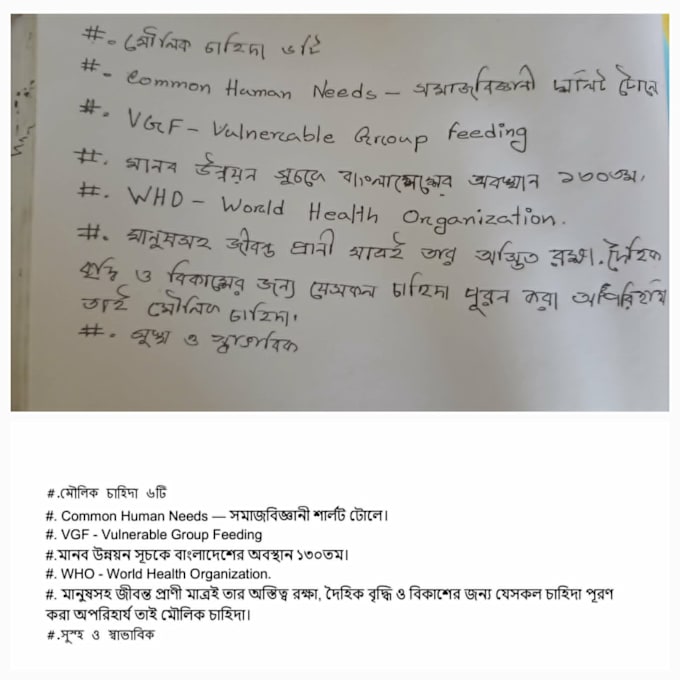 #. মৌলিক চাহিদা ৬টি
#. Common Human Needs – সমাজবিজ্ঞানী শার্লট টোলে
#. VGF – Vulnerable Group Feeding
#. মানব উন্নয়ন সূচকে বাংলাদেশের অবস্থান ১৩০তম।
#. WHO – World Health Organization.
#. মানুষসহ জীবন্ত প্রানী মাত্রই তার অস্তিত্ব রক্ষা, দৈহিক
বৃদ্ধি ও বিকাশের জন্য যেসকল চাহিদা পূরন করা অপরিহার্য
তাই মৌলিক চাহিদা।
#. সুস্থ ও স্বাভাবিক
#.মৌলিক চাহিদা ৬টি
#. Common Human Needs — সমাজবিজ্ঞানী শার্লট টোলে।
#. VGF - Vulnerable Group Feeding
#.মানব উন্নয়ন সূচকে বাংলাদেশের অবস্থান ১৩০তম।
#. WHO - World Health Organization.
#. মানুষসহ জীবন্ত প্রাণী মাত্রই তার অস্তিত্ব রক্ষা, দৈহিক বৃদ্ধি ও বিকাশের জন্য যেসকল চাহিদা পূরণ
করা অপরিহার্য তাই মৌলিক চাহিদা।
#.সুস্হ ও স্বাভাবিক